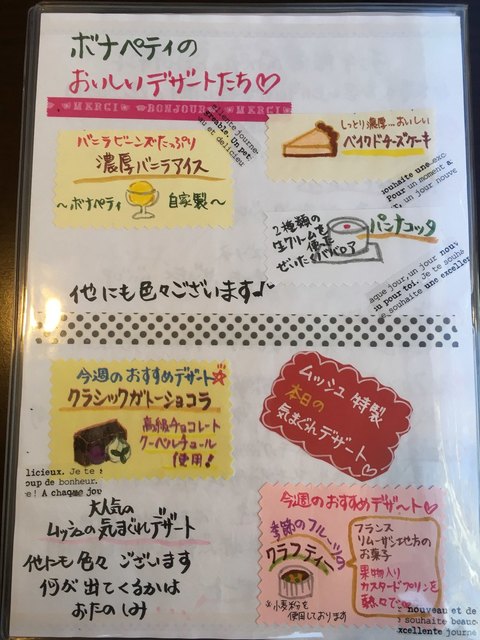 ボナペティの
おいしいデザートたち♡
MERCI BONJOUR MERCI
バニラビーンズたっぷり
濃厚バニラアイス
～ボナペティ 自家製～
しっとり濃厚…おいしい
ベイクドチーズケーキ
パンナコッタ
2種類の
生クリームを
使った
ぜいたくババロア
他にも色々ございます♪
今週のおすすめデザート☆
クラシックガトーショコラ
高級チョコレート
クーベルチュール
使用!
ムッシュ特製
本日の
気まぐれデザート
大人気の
ムッシュの気まぐれデザート
他にも色々ございます
何が出てくるかは
おたのしみ
今週のおすすめデザート♡
季節のフルーツの
クラフティー
※小麦粉を
使用しております
フランス
リムーザン地方の
お菓子
果物入り
カスタードプリンを
熱々で